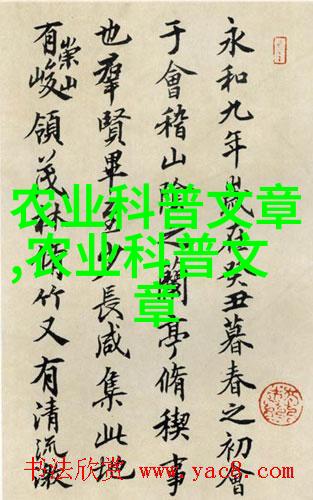 永和九年歲在癸丑暮春之初會
于會稽山陰之蘭亭脩稧事
也羣賢畢至少長咸集此地
有崇山峻領茂林脩竹又有清流激
农业科普文章
,农业科普文
章
书法欣赏 www.yac8.com